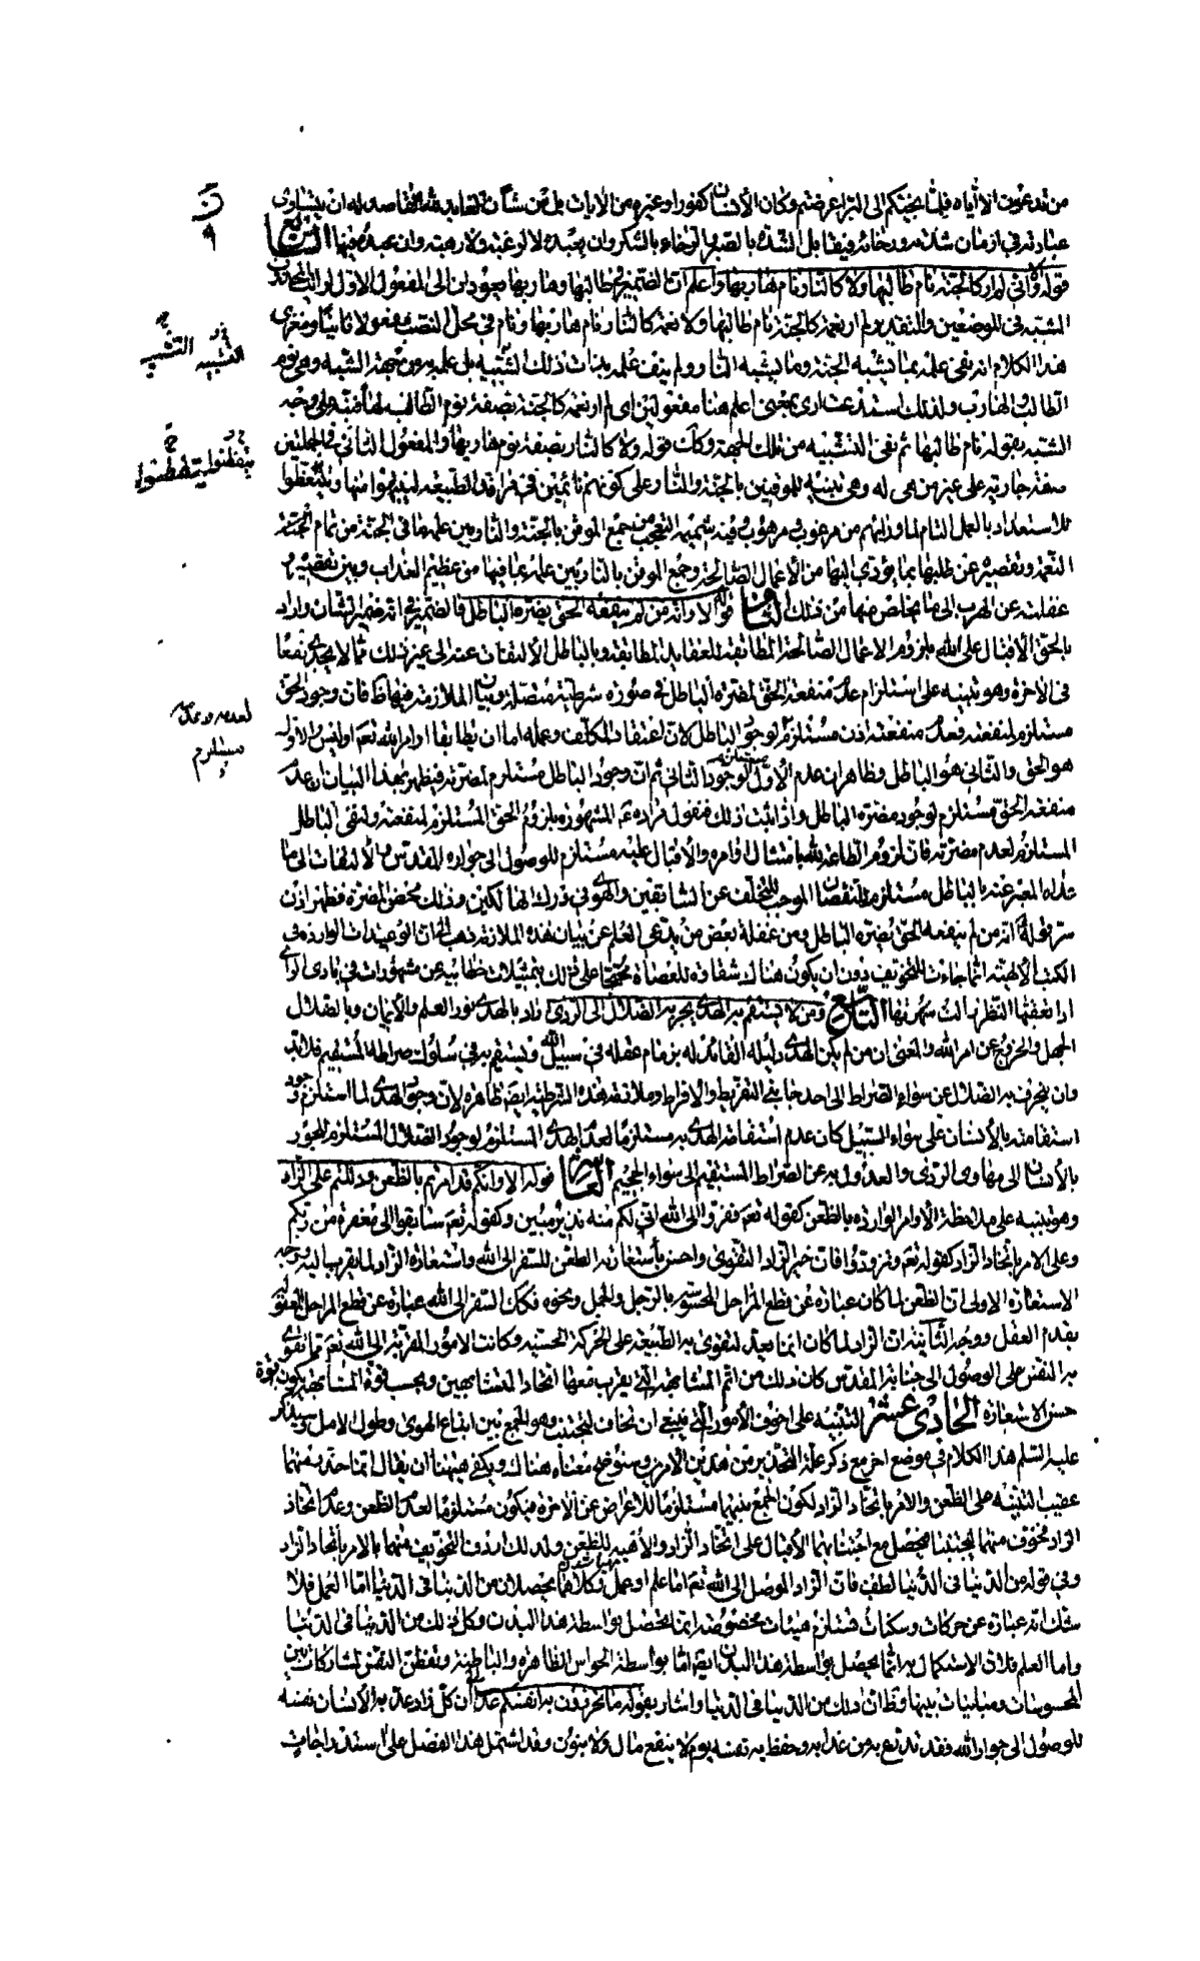 من تدعون الا اياه فلما نجيكم الى البر اعرضتم وكان الانسان كفورا وغيره من الايات بل من شأن العابد لله القاصد له ان يتساوى
عبادته في ازمان شدته ورخائه فيقابل الشدة بالصبر والرخاء بالشكر وان يعبده لا لرغبة ولا رهبة وان يعبده فيهما السابع
قوله الا واني لم ار كالجنة نام طالبها ولا كالنار نام هاربها واعلم ان الضمير في طالبها وهاربها يعودان الى المفعول الاول لرأيت المحذوف
المشبه في الموضعين والتقدير ولم ار نعمة كالجنة نام طالبها ولا نقمة كالنار نام هاربها ونام في محل النصب مفعولا ثانيا ومغزى
هذا الكلام انه نفى علمه بما يشبه الجنة وما يشبه النار ولم ينف علمه بذات ذلك الشبيه بل علمه به من جهة الشبه وهي نوم
الطالب والهارب ولذلك استدعت ارى بمعنى اعلم هنا مفعولين اى لم ار نعمة كالجنة بصفة نوم الطالب لها فنبه على وجه
الشبه بقوله نام طالبها ثم نفى التشبيه من تلك الجهة وكذلك قوله ولا كالنار بصفة نوم هاربها والمفعول الثاني في الجملتين
صفة جارية على غير من هي له وهي تنبيه للموقنين بالجنة والنار على كونهم نائمين في مراقد الطبيعة لينتبهوا منها ويتعظوا
للاستعداد بالعمل التام لما وراءهم من مرغوب ومرهوب وفيه شميمة التعجب من جمع الموقن بالجنة والنار بين علمه بما في الجنة من تمام
النعمة وتقصيره عن طلبها بما يؤدي اليها من الاعمال الصالحة وجمع الموقن بالنار بين علمه بما فيها من عظيم العذاب وبين تقصيره
غفلته عن الهرب الى ما يخلص منها من ذلك الثامن قوله الا وانه من لم ينفعه الحق يضره الباطل فالضمير في انه ضمير الشأن واراد
بالحق الاقبال على الله بلزوم الاعمال الصالحة المطابقة للعقايد المطابقة وبالباطل الالتفات عنه الى غير ذلك مما لا يجدى نفعا
في الاخرة وهو تنبيه على استلزام عدم منفعة الحق لمضرة الباطل في صورة شرطية متصلة وبيان الملازمة فيها ظ فان وجود الحق
مستلزم لمنفعته فعدم منفعته اذن مستلزم لوجود الباطل لان اعتقاد المكلف وعمله اما ان يطابقا اوامر الله تعم او ليس والاول
هو الحق والثاني هو الباطل وظاهر ان عدم الاول مستلزم لوجود الثاني ثم ان وجود الباطل مستلزم لمضرته فيظهر بهذا البيان ان عدم
منفعة الحق مستلزم لوجود مضرة الباطل واذا ثبت ذلك فنقول مراده عم المشهورة بلزوم الحق المستلزم لمنفعته ولنفى الباطل
المستلزم لعدم مضرته فان لزوم الطاعة لله بامتثال اوامره والاقبال عليه مستلزم للوصول الى جواره المقدس والالتفات الى ما
عداه المعبر عنه بالباطل مستلزم للنقصان الموجب للتخلف عن السابقين والهوى في درك الهالكين وذلك محض المضرة فظهر اذن
سر قوله انه من لم ينفعه الحق يضره الباطل ومن غفلة بعض من يدعي العلم عن بيان هذه الملازمة ذهب الى ان الوعيدات الواردة في
الكتب الالهية انما جاءت للتخويف دون ان يكون هناك شقاوة للعصاة محتجا على ذلك بتمثيلات خطابية عن مشهورات في بادى الرأى
اذا تعقبها النظر زالت شهرتها التاسع ومن لا يستقيم به الهدى يجر به الضلال الى الردى اراد بالهدى نور العلم والايمان وبالضلال
الجهل والخروج عن امر الله والمعنى ان من لم يكن الهدى دليله القائد له بزمام عقله في سبيل الله ويستقيم به في سلوك صراطه المستقيم فلا بد
وان ينحرف به الضلال عن سواء الصراط الى احد جانبي التفريط والافراط وملازمة هذه الشرطية ايضا ظاهرة لان وجود الهدى لما استلزم وجود
استقامته بالانسان على سواء السبيل كان عدم استقامة الهدى به مستلزما لعدم الهدى المستلزم لوجود الضلال المستلزم للجور
بالانسان الى مهاوى الردى والعدول به عن الصراط المستقيم الى سواء الجحيم العاشر قوله الا وانكم قد امرتم بالظعن ودللتم على الزاد
وهو تنبيه على ملاحظة الاوامر الواردة بالظعن كقوله تعم ففروا الى الله اني لكم منه نذير مبين وكقوله تعم سابقوا الى مغفرة من ربكم
وعلى الامر باتخاذ الزاد كقوله تعم وتزودوا فان خير الزاد التقوى واحسن باستعارته الظعن للسفر الى الله واستعارة الزاد لما يقرب اليه ووجه
الاستعارة الاولى ان الظعن لما كان عبارة عن قطع المراحل المحسوسة بالرجل والجمل ونحوه فكذلك السفر الى الله عبارة عن قطع المراحل المعقولة
بقدم العقل ووجه الثانية ان الزاد لما كان انما يعد لتقوى به الطبيعة على الحركة الحسية وكانت الامور المقربة الى الله تعم مما تقوى
به النفس على الوصول الى جنابه المقدس كان ذلك من اتم المشابهة التي يقرب معها اتحاد المتشابهين وبحسب قوة المشابهة يكون قوة
حسن الاستعارة الحادي عشر التنبيه على اخوف الامور التي ينبغى ان تخاف لتجتنب وهو الجمع بين اتباع الهوى وطول الامل وسيذكر
عليه السلم هذا الكلام في موضع اخر مع ذكر علة التحذير من هذين الامرين وسنوضح معناه هناك ويكفى هيهنا ان يقال انما حذر منهما
عقيب التنبيه على الظعن والامر باتخاذ الزاد لكون الجمع بينهما مستلزما للاعراض عن الاخرة فيكون مستلزما لعدم الظعن وعدم اتخاذ
الزاد فخوف منهما ليجتنبا فيحصل مع اجتنابهما الاقبال على اتخاذ الزاد والاهبة للظعن ولذلك اردف التخويف منهما بالامر باتخاذ الزاد
وفي قوله من الدنيا في الدنيا لطف فان الزاد الموصل الى الله تعم اما علم او عمل وكلاهما يحصلان من الدنيا في الدنيا اما العمل فلا
شك انه عبارة عن حركات وسكنات تستلزم هيئات مخصوصة انما تحصل بواسطة هذا البدن وكل ذلك من الدنيا في الدنيا
واما العلم فلان الاستكمال به انما يحصل بواسطة هذا البدن ايضا اما بواسطة الحواس الظاهرة والباطنة وتفطن النفس لمشاركات بين
المحسوسات ومباينات بينها وظ ان ذلك من الدنيا في الدنيا واشار بقوله ما تحرزون به انفسكم غدا الى ان كل زاد عد به الانسان نفسه
للوصول الى جوار الله فقد تدرع به من عذابه وحفظ به نفسه يوم لا ينفع مال ولا بنون وقد اشتمل هذا الفصل على استدراجات
التشبيه التشبيه
يتفطنوا ليتفطنوا
لعدمه وعدمه
مستلزم